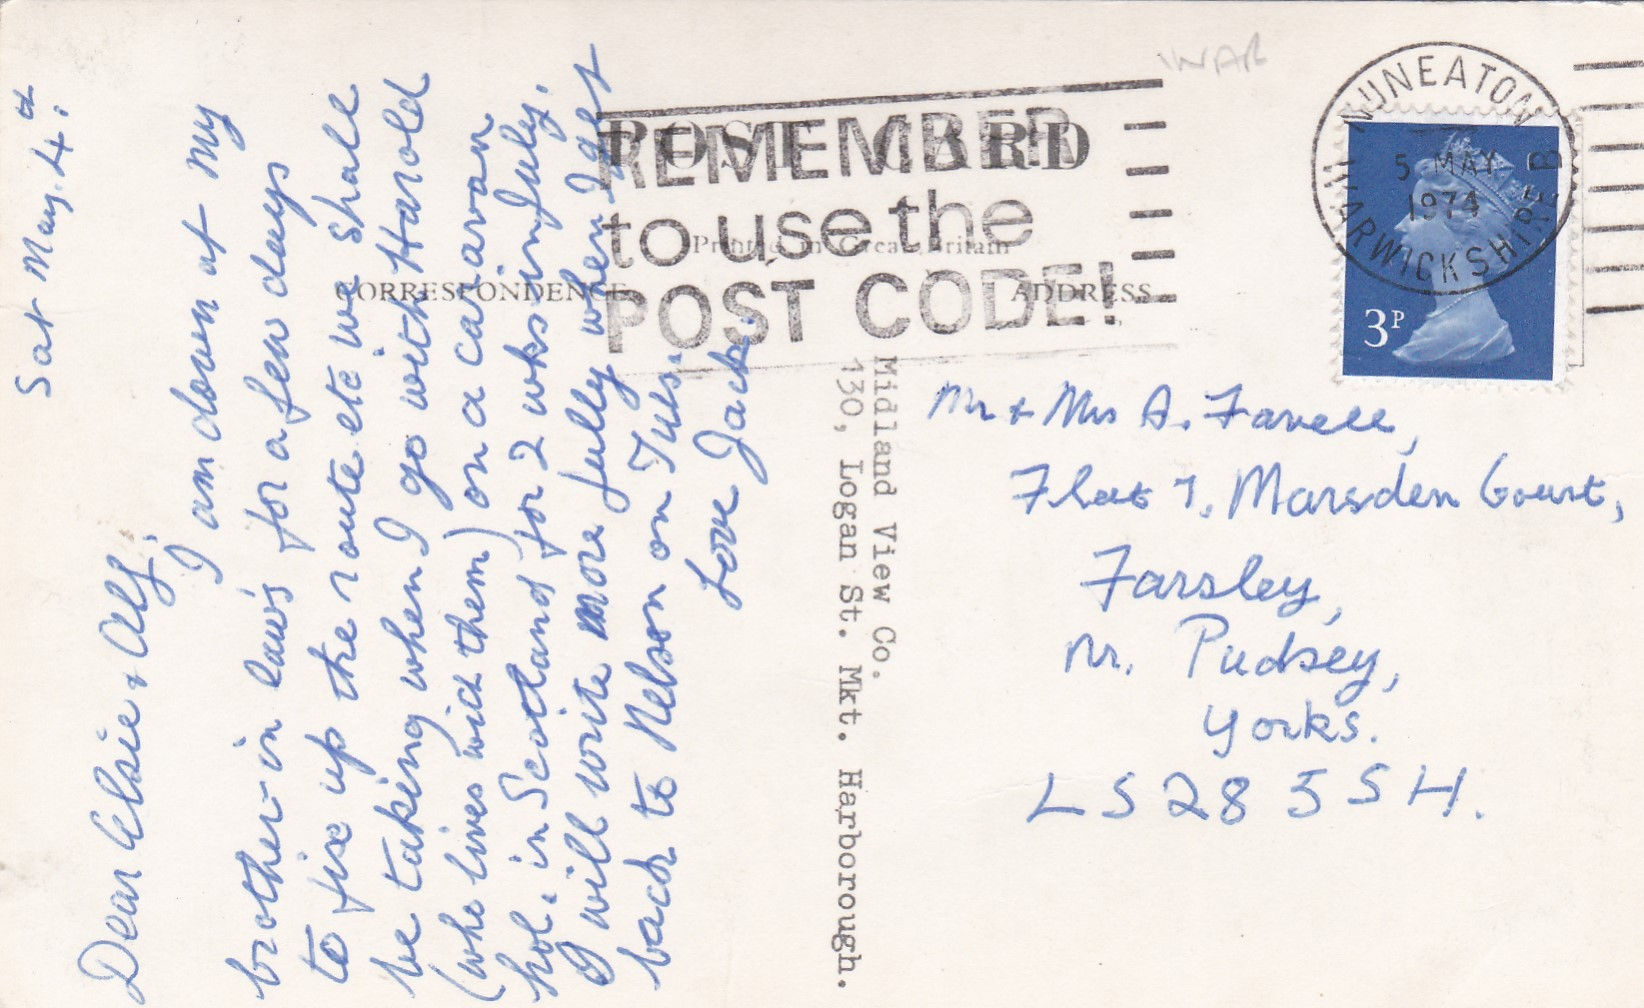 WAR
POST CARD
Printed in Great Britain
CORRESPONDENCE
ADDRESS
REMEMBER
to use the
POST CODE!
NUNEATON
WARWICKSHIRE B
5 MAY
1974
3P
Sat May. 4th
Dear Elsie & Alf,
I am down at my
brother-in laws for a few days
to fix up the route etc we shall
be taking when I go with Harold
(who lives with them) on a caravan
hol. in Scotland for 2 wks in July.
I will write more fully when I get
back to Nelson on Tues.
Love Jack.
Midland View Co.
130, Logan St. Mkt. Harborough.
Mr & Mrs A. Favell,
Flat 7, Marsden Court,
Farsley,
Nr. Pudsey,
Yorks.
LS28 5SH.